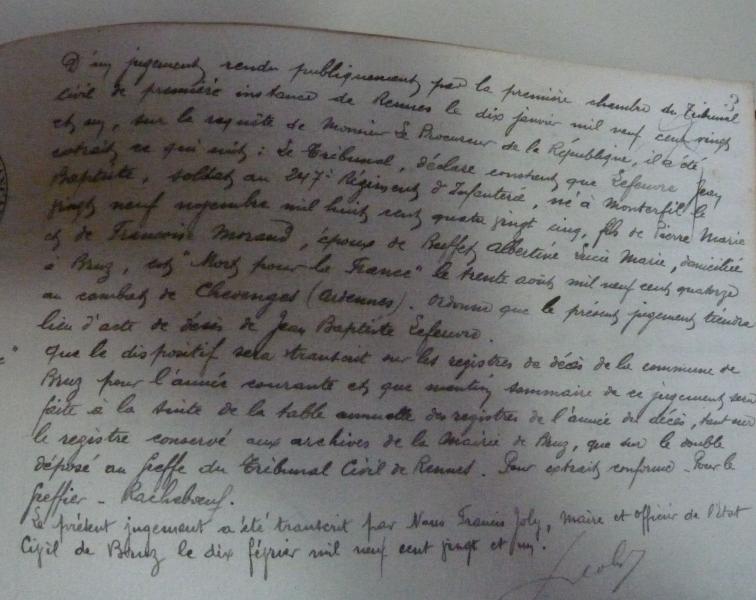 D'un jugement rendu publiquement par la première chambre du Tribunal
Civil de première instance de Rennes le dix janvier mil neuf cent vingt
et un, sur la requête de Monsieur Le Procureur de la République, il a été
extrait ce qui suit : Le Tribunal, déclare constant que Lefeuvre Jean
Baptiste, soldat au 247e Régiment d'Infanterie, né à Monterfil le
vingt neuf novembre mil huit cent quatre vingt cinq, fils de Pierre Marie
et de Françoise Morand, époux de Buffet Albertine Lucie Marie, domicilié
à Bruz, est "Mort pour la France" le trente août mil neuf cent quatorze
au combat de Chevenges (Ardennes). Ordonne que le présent jugement tiendra
lieu d'acte de décès de Jean Baptiste Lefeuvre.
que le dispositif sera transcrit sur les registres de décès de la commune de
Bruz pour l'année courante et que mention sommaire de ce jugement sera
faite à la suite de la table annuelle des registres de l'année du décès, tant sur
le registre conservé aux archives de la Mairie de Bruz, que sur le double
déposé au Greffe du Tribunal Civil de Rennes. Pour extrait conforme - Pour le
Greffier - Racheboeuf.
Le présent jugement a été transcrit par Nous Francis Joly, maire et officier de l'Etat
Civil de Bruz le dix février mil neuf cent vingt et un.